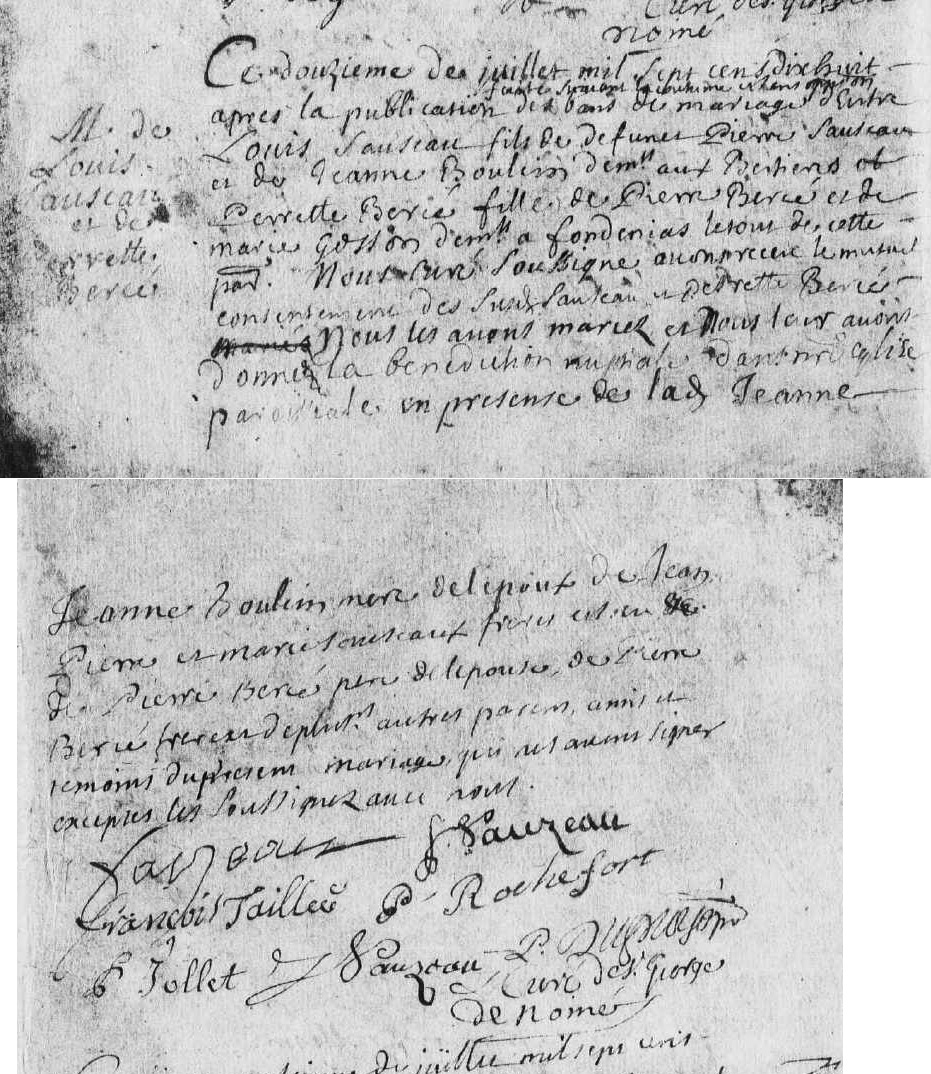 Curé des. Gorge
nomé
M. de
Louis
Sauseau
et de
Perrette
Bercé
Ce douzieme de juillet mil sept cens dixhuit
faitte suivant la coutume et sans
apres la publication des bans de mariage d'Entre
Louis Sauseau fils de defunct Pierre Sauseau
et de Jeanne Boulin demts aux Bertieres et
Perrette Bercé fille de Pierre Bercé et de
marie Gosson demts a fondenias le tout de cette
par. Nous Curé Soussigné avons receu le mutuel
consentement des susd Sauseau et Perrette Bercé
Nous les avons mariez et Nous leur avons
donnez la benediction nuptiale dans nre eglise
paroissiale en presense de lad Jeanne
Jeanne Boulin mere de lepoux de Jean
Pierre et marie Souseaux freres et seur
de Pierre Bercé pere de lepouse, de Pierre
Bercé frere et de plusrs autres parens, amis et
temoins du present mariage qui ne savent signer
exceptes les soussignez avec nous.
Sauzeau J. Sauzeau
François Taillée P. Rochefort
P. Jollet J Sauzeau P.
Curé de St. George
de nomé
de juillet mil sept cens